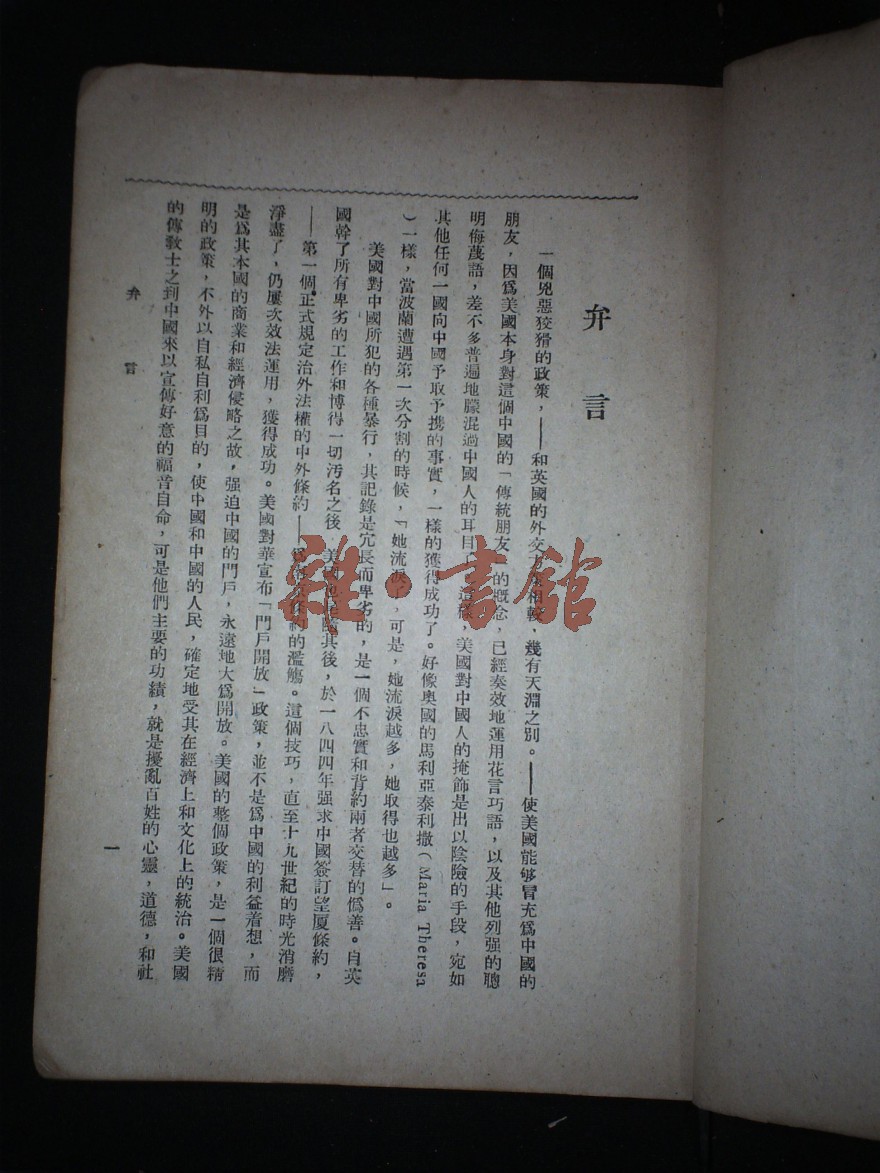 弁言
一個兇惡狡猾的政策，——和英國的外交方策相較，幾有天淵之別。——使美國能够冒充爲中國的
朋友，因爲美國本身對這個中國的「傳統朋友」的概念，已經奏效地運用花言巧語，以及其他列强的聰
明侮蔑語，差不多普遍地朦混過中國人的耳目了。這樣，美國對中國人的掩飾是出以陰險的手段，宛如
其他任何一國向中國予取予携的事實，一樣的獲得成功了。好像奥國的馬利亞泰利撒（Maria Theresa
）一樣，當波蘭遭遇第一次分割的時候，「她流淚了，可是，她流淚越多，她取得也越多」。
美國對中國所犯的各種暴行，其記錄是冗長而卑劣的，是一個不忠實和背約兩者交替的僞善。自英
國幹了所有卑劣的工作和博得一切汚名之後 美國 其後，於一八四四年强求中國簽訂望厦條約，
——第一個正式規定治外法權的中外條約—— 約的濫觴。這個技巧，直至十九世紀的時光消磨
淨盡了，仍屢次效法運用，獲得成功。美國對華宣布「門戶開放」政策，並不是爲中國的利益着想，而
是爲其本國的商業和經濟侵略之故，强迫中國的門戶，永遠地大爲開放。美國的整個政策，是一個很精
明的政策，不外以自私自利爲目的，使中國和中國的人民，確定地受其在經濟上和文化上的統治。美國
的傳敎士之到中國來以宣傳好意的福音自命，可是他們主要的功績，就是擾亂百姓的心靈，道德，和社
弁言
一
雜·書館